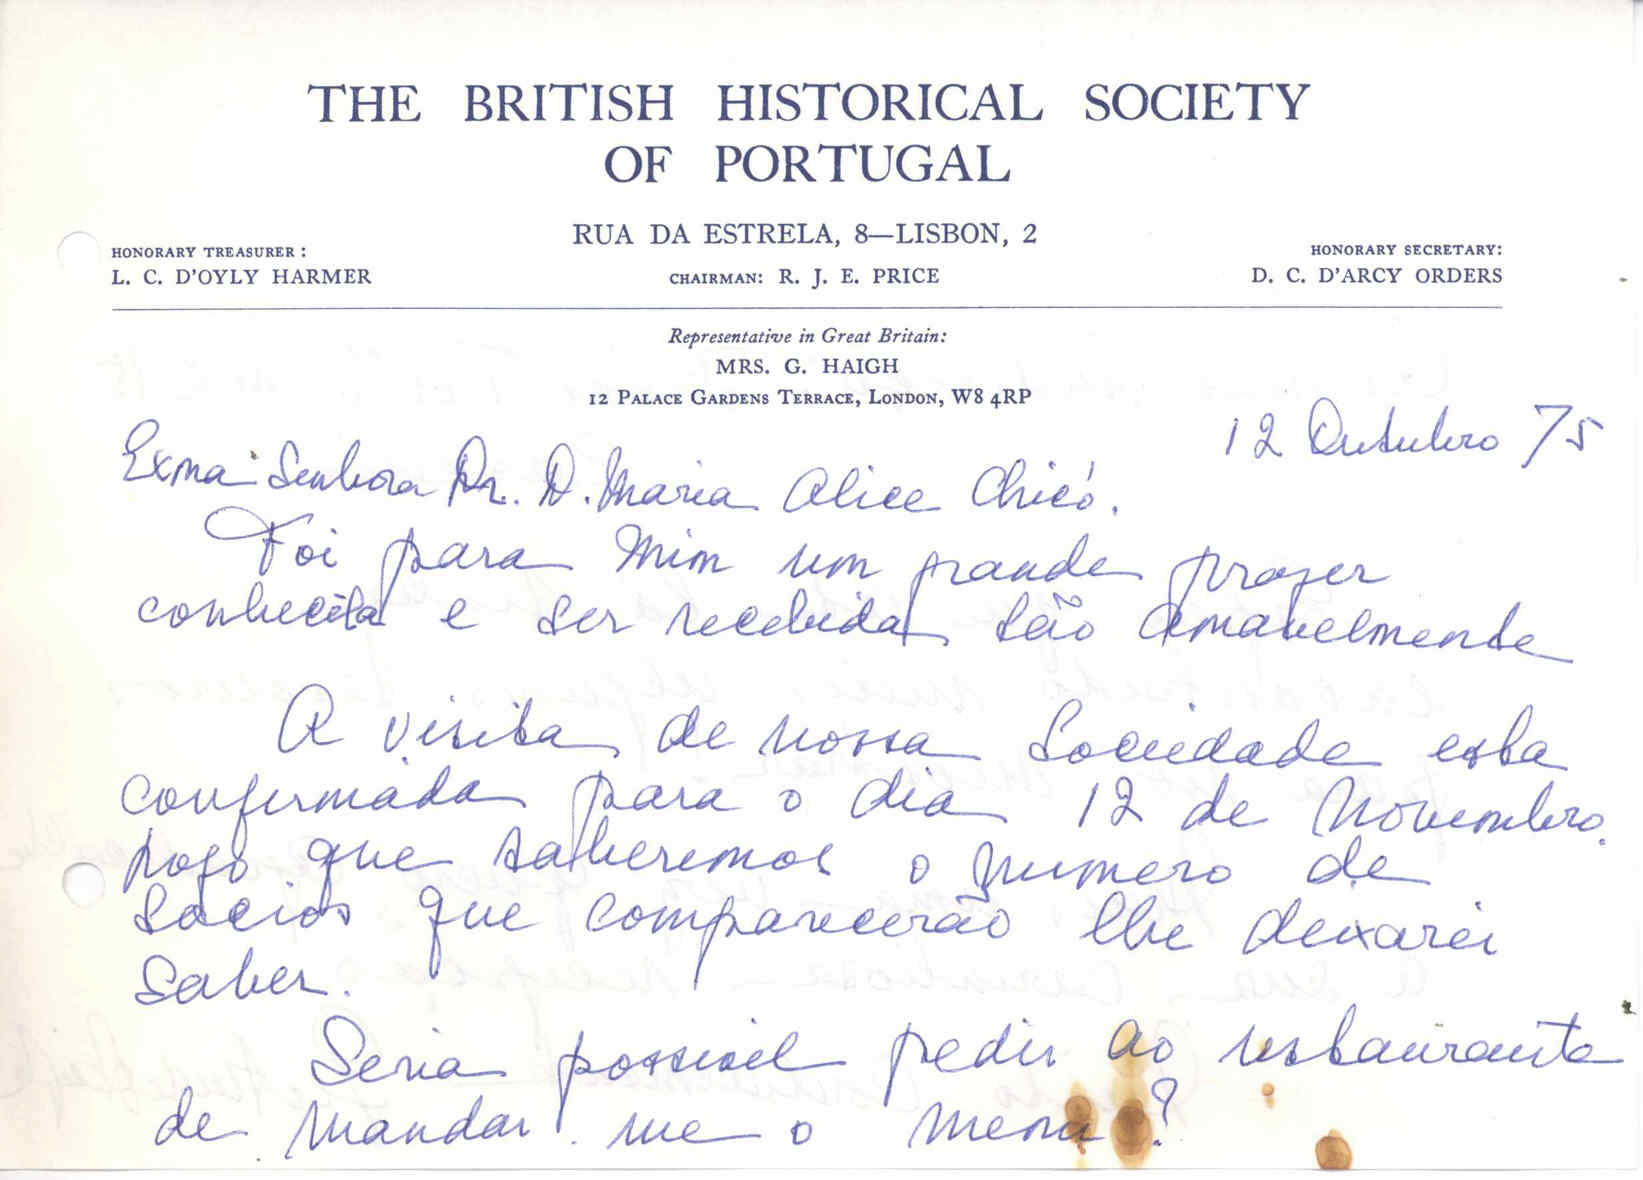 THE BRITISH HISTORICAL SOCIETY
OF PORTUGAL
RUA DA ESTRELA, 8—LISBON, 2
HONORARY TREASURER :
L. C. D'OYLY HARMER
CHAIRMAN: R. J. E. PRICE
HONORARY SECRETARY:
D. C. D'ARCY ORDERS
Representative in Great Britain:
MRS. G. HAIGH
12 PALACE GARDENS TERRACE, LONDON, W8 4RP
12 Outubro 75
Exma Senhora Dr. D. Maria Alice Chicó.
Foi para mim um grande prazer
conhecela e ser recebida tão amavelmente
A visita de nossa Sociedade esta
confirmada para o dia 12 de Novembro.
logo que saberemos o numero de
Socios que comparecerão lhe deixarei
saber.
Seria possivel pedir ao restaurante
de mandar me o menu?